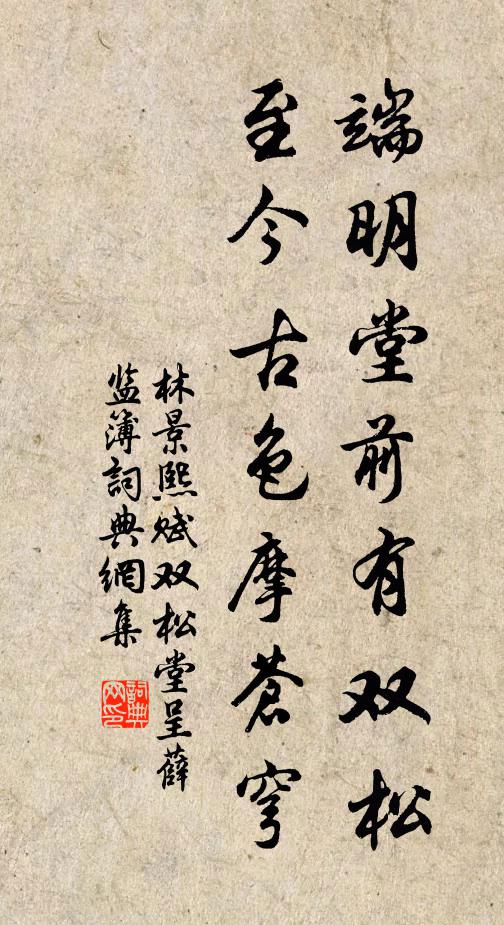 端明堂前有双松
至今古色摩苍穹
林景熙赋双松堂呈薛
监簿詞典網集
詞典网印